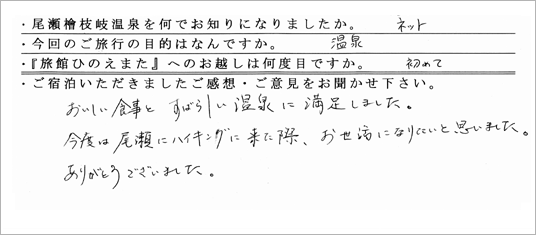 ・尾瀬檜枝岐温泉を何でお知りになりましたか。 ネット
・今回のご旅行の目的はなんですか。 温泉
・『旅館ひのえまた』へのお越しは何度目ですか。 初めて
・ご宿泊いただきましたご感想・ご意見をお聞かせ下さい。
おいしい食事と すばらしい温泉に満足しました。
今度は尾瀬にハイキングに来た際、お世話になりたいと思いました。
ありがとうございました。